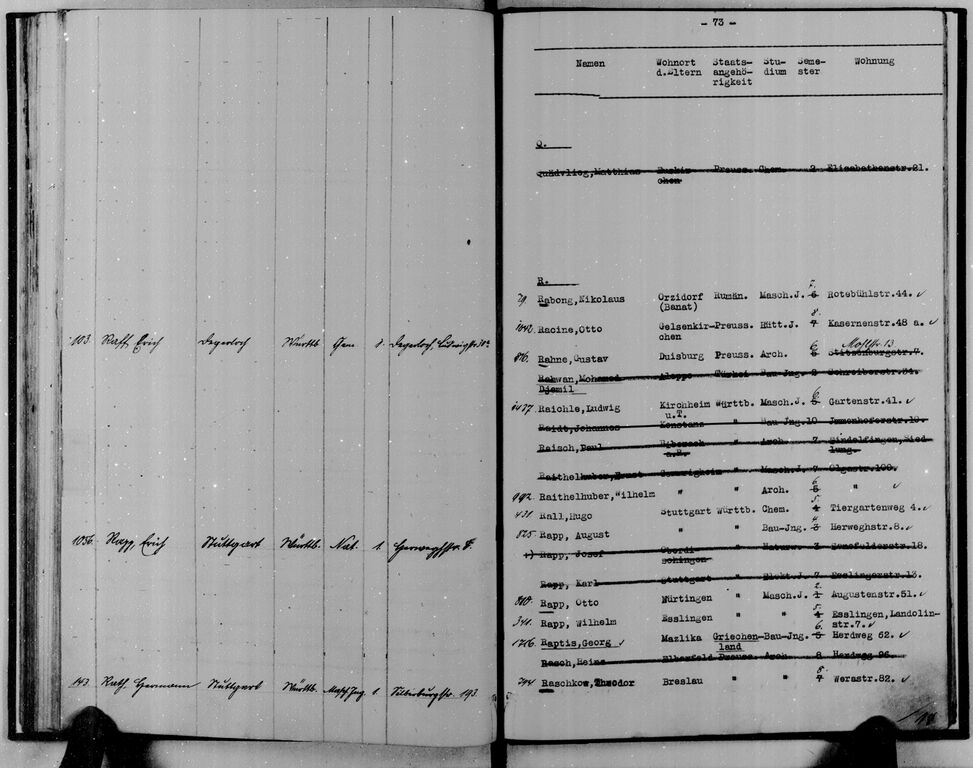 103. Raff, Erich Degerloch Württb. Chem. 1. Degerloch, Ludwigstr. 38a
1056. Rapp, Erich Stuttgart Württb. Nat. 1. Herweghstr. 8.
143. Rath, Hermann Stuttgart Württb. Masch.Ing. 1 Silberburgstr. 193
- 73 -
Namen Wohnort Staats- Stu- Seme- Wohnung
d.Eltern angehö- dium ster
rigkeit
Q.
Quadvlieg,Matthias Euskir- Preuss. Chem. 2 Elisabethenstr.21.
chen
R.
7.
79. Rabong,Nikolaus Orzidorf Rumän. Masch.J. 6 Rotebühlstr.44. ✓
(Banat)
8.
1042. Racine,Otto Gelsenkir- Preuss. Hütt.J. 7 Kasernenstr.48 a. ✓
chen
6. Mohlstr. 13
816. Rahne,Gustav Duisburg Preuss. Arch. 5 Stitzenburgstr.7.
Rahwan,Mohamed Aleppo Türkei Bau-Jng. 2 Schreiberstr.34.
Djemil
6
1437. Raichle,Ludwig Kirchheim Württb. Masch.J. 5 Gartenstr.41. ✓
u.T.
Raidt,Johannes Konstanz " Bau-Jng.10 Jmmenhoferstr.19.
Raisch,Paul Biberach " Arch. 7. Sindelfingen,Sied
a.R. lung.
Raithelhuber,Ernst Gomarigheim " Masch.J. 7 Olgastr.109.
6
992. Raithelhuber,Wilhelm " " Arch. 5 " ✓
5.
431. Rall,Hugo Stuttgart Württb. Chem. 4 Tiergartenweg 4. ✓
4
825. Rapp, August " " Bau-Jng. 3 Herweghstr.8. ✓
Rapp, Josef Oberdi- " Naturw. 3 Senefelderstr.18.
schingen
Rapp, Karl Stuttgart " Elekt.J. 7 Esslingerstr.13.
2.
808. Rapp, Otto Nürtingen " Masch.J. 1 Augustenstr.51. ✓
5.
341. Rapp, Wilhelm Esslingen " " 4 Esslingen,Landolin-
str.7. ✓
6.
1256. Raptis,Georg ✓ Mazlika Griechen- Bau-Jng. 5 Herdweg 62. ✓
land
Rasch,Heinz Elberfeld Preuss. Arch. 8 Herdweg 96.
8.
744 Raschkow,Theodor Breslau " " 7 Werastr.82. ✓